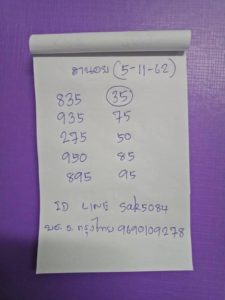 ฮานอย (5-11-62)
835 35
935 75
275 50
950 85
895 95
ID LINE Sak5084
ธ.กรุงไทย 9690109278